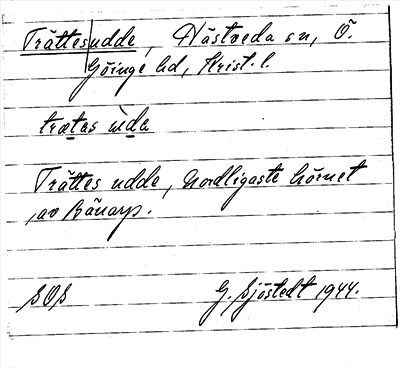 Trättes|udde, Hästveda sn, Ö.
Göinge hd, Krist. l.
trætas ùda
Trättes udde, nordligaste hörnet
av Bänarp.
SOS
G. Sjöstedt 1944.